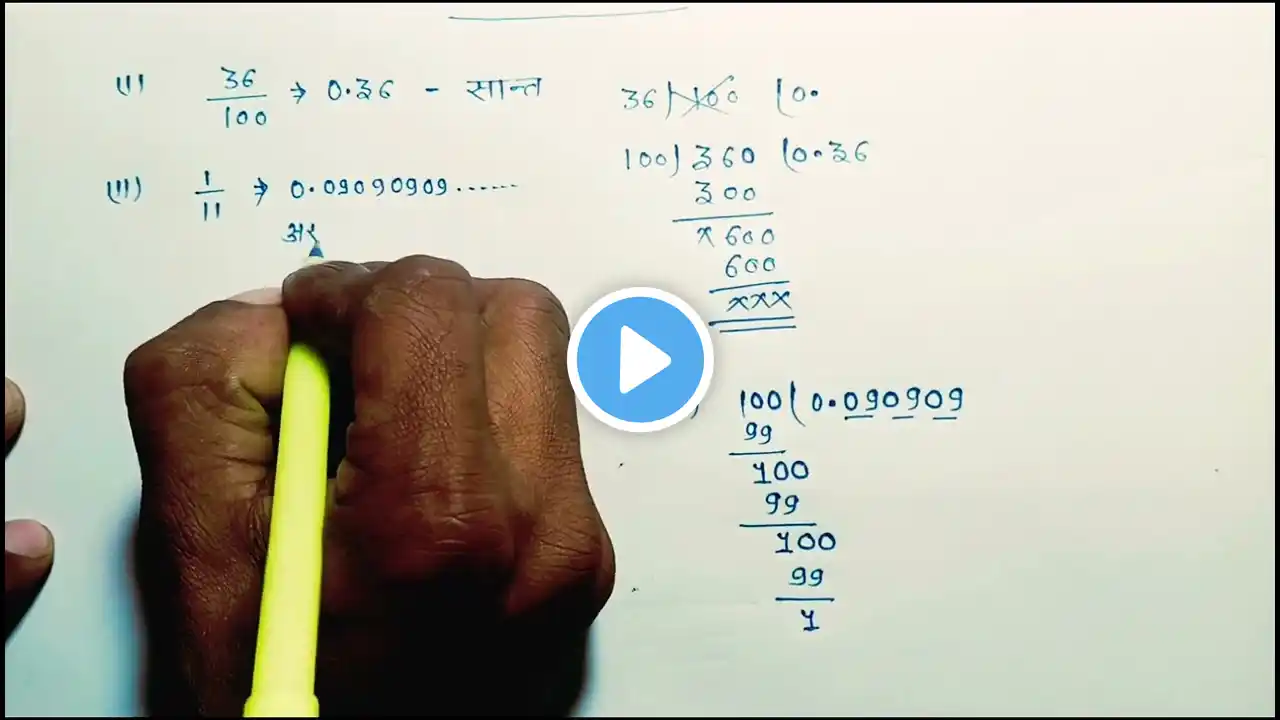 (I) 36/100 → 0.36 - सान्त
(II) 1/11 → 0.09090909......
36)100(0.
100)360(0.36
300
×600
600
×××
100(0.090909
99
100
99
100
99
1